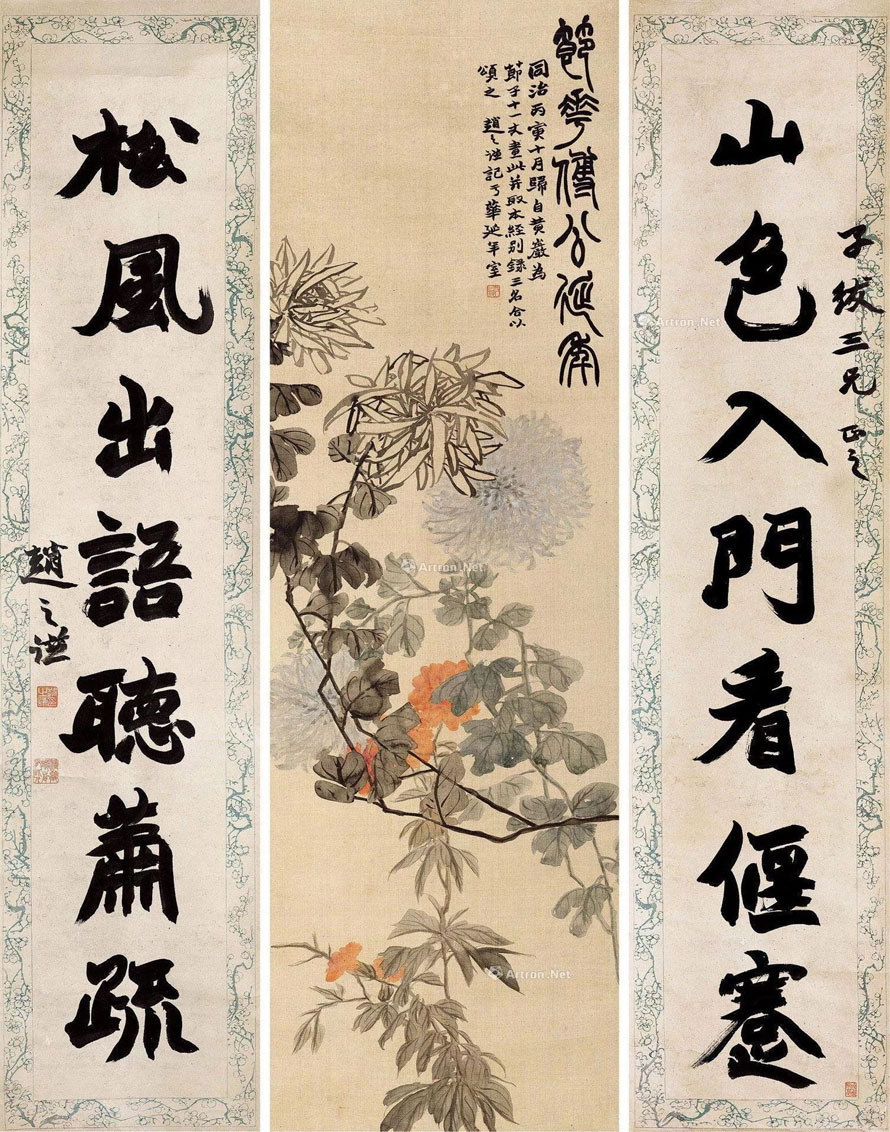 子紱三兄正之
山色入門看偃蹇
節華傅公延年
同治丙寅十月歸自黃巖為
節子十一丈畫此并取本經別錄三名合以
頌之 趙之謙記于華延年室
松風出語聽蕭疏
趙之謙
Artron.Net
Artron.Net
Artron.Net